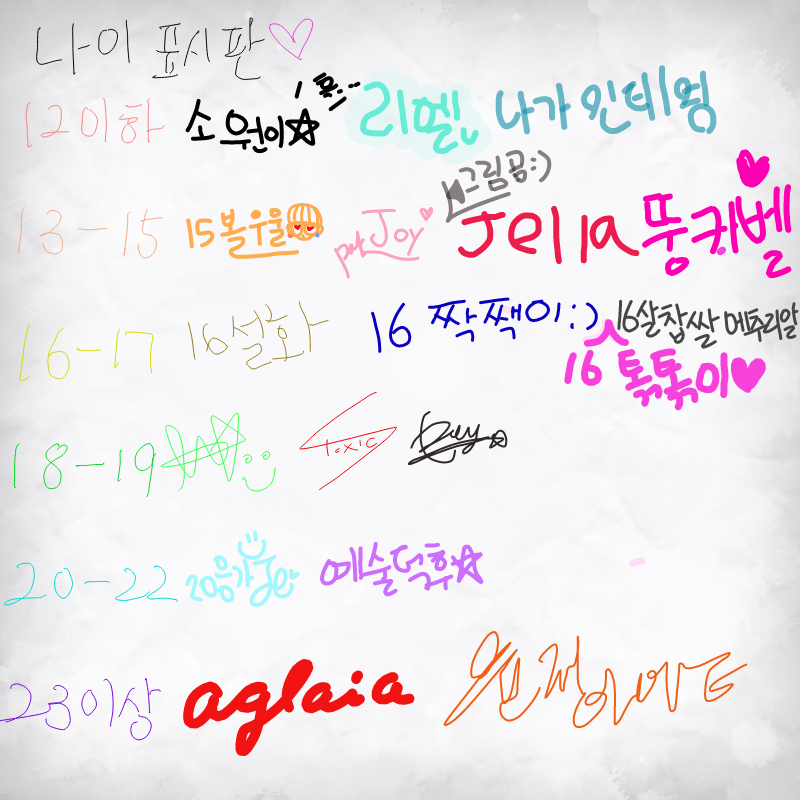 나이 표시판♡
12이하 소원이☆ 흑... 리멜 나가 인테영
13-15 15볼우울 Joy 그림곰:) Jella 뚱카벨
16-17 16설화 16 짝짹이:) 16살찹쌀 메추리알
16 톢톢이♥
18-19 toxic Ray
20-22 20응가 예술덕후☆
23이상 aglaia